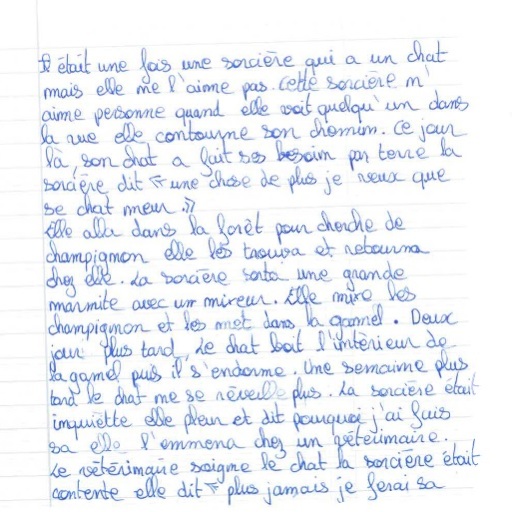 Il était une fois une sorcière qui a un chat
mais elle ne l'aime pas. cette sorcière m'
aime personne quand elle voit quelqu'un dans
la rue elle contourne son chomin. Ce jour
là, son chat a fait ses besoin par terre la
sorcière dit « une chose de plus je veux que
se chat meur »
Elle alla dans la forêt pour cherche de
champignon elle les trouva et retourna
chez elle. La sorcière sorta une grande
marmite avec un mixeur. Elle mixe les
champignon et les met dans la gamel. Deux
jour plus tard, Le chat boit l'intérieur de
la gamel puis il s'endorme. Une semaine plus
tard le chat me se réveille plus. La sorcière était
inquiètte elle pleur et dit pourquoi j'ai fais
sa elle l'emmena chez un vétérimaire.
Le vétérimaire soigne le chat la sorcière était
contente elle dit « plus jamais je ferai sa